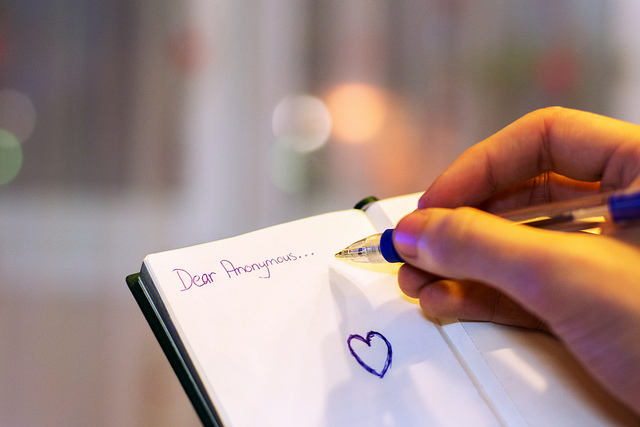 Dear Anonymous...